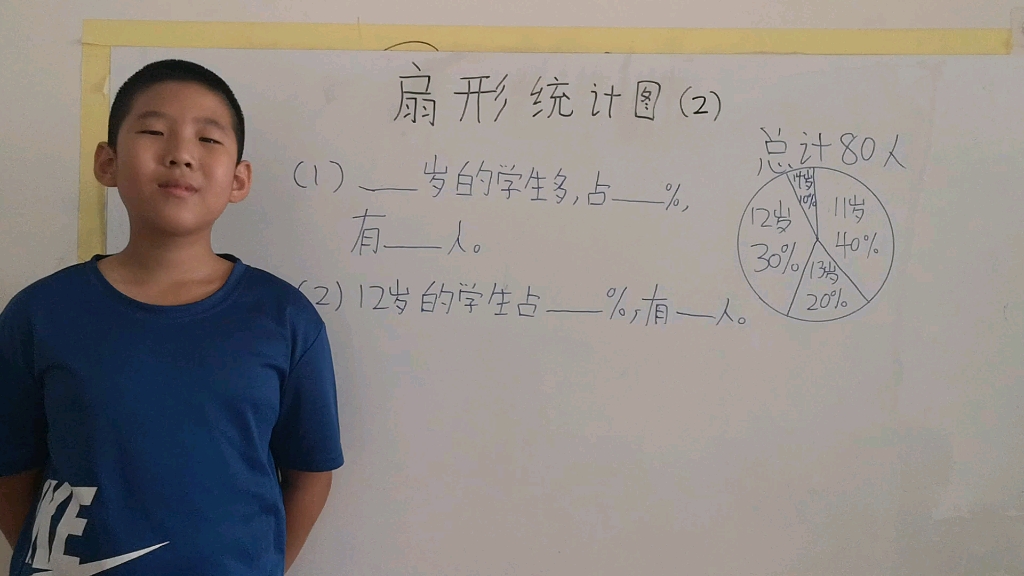 扇形统计图(2)
(1)___岁的学生多,占___%,
有___人。
(2)12岁的学生占___%,有___人。
总计80人
14岁
10%
11岁
40%
12岁
30%
13岁
20%